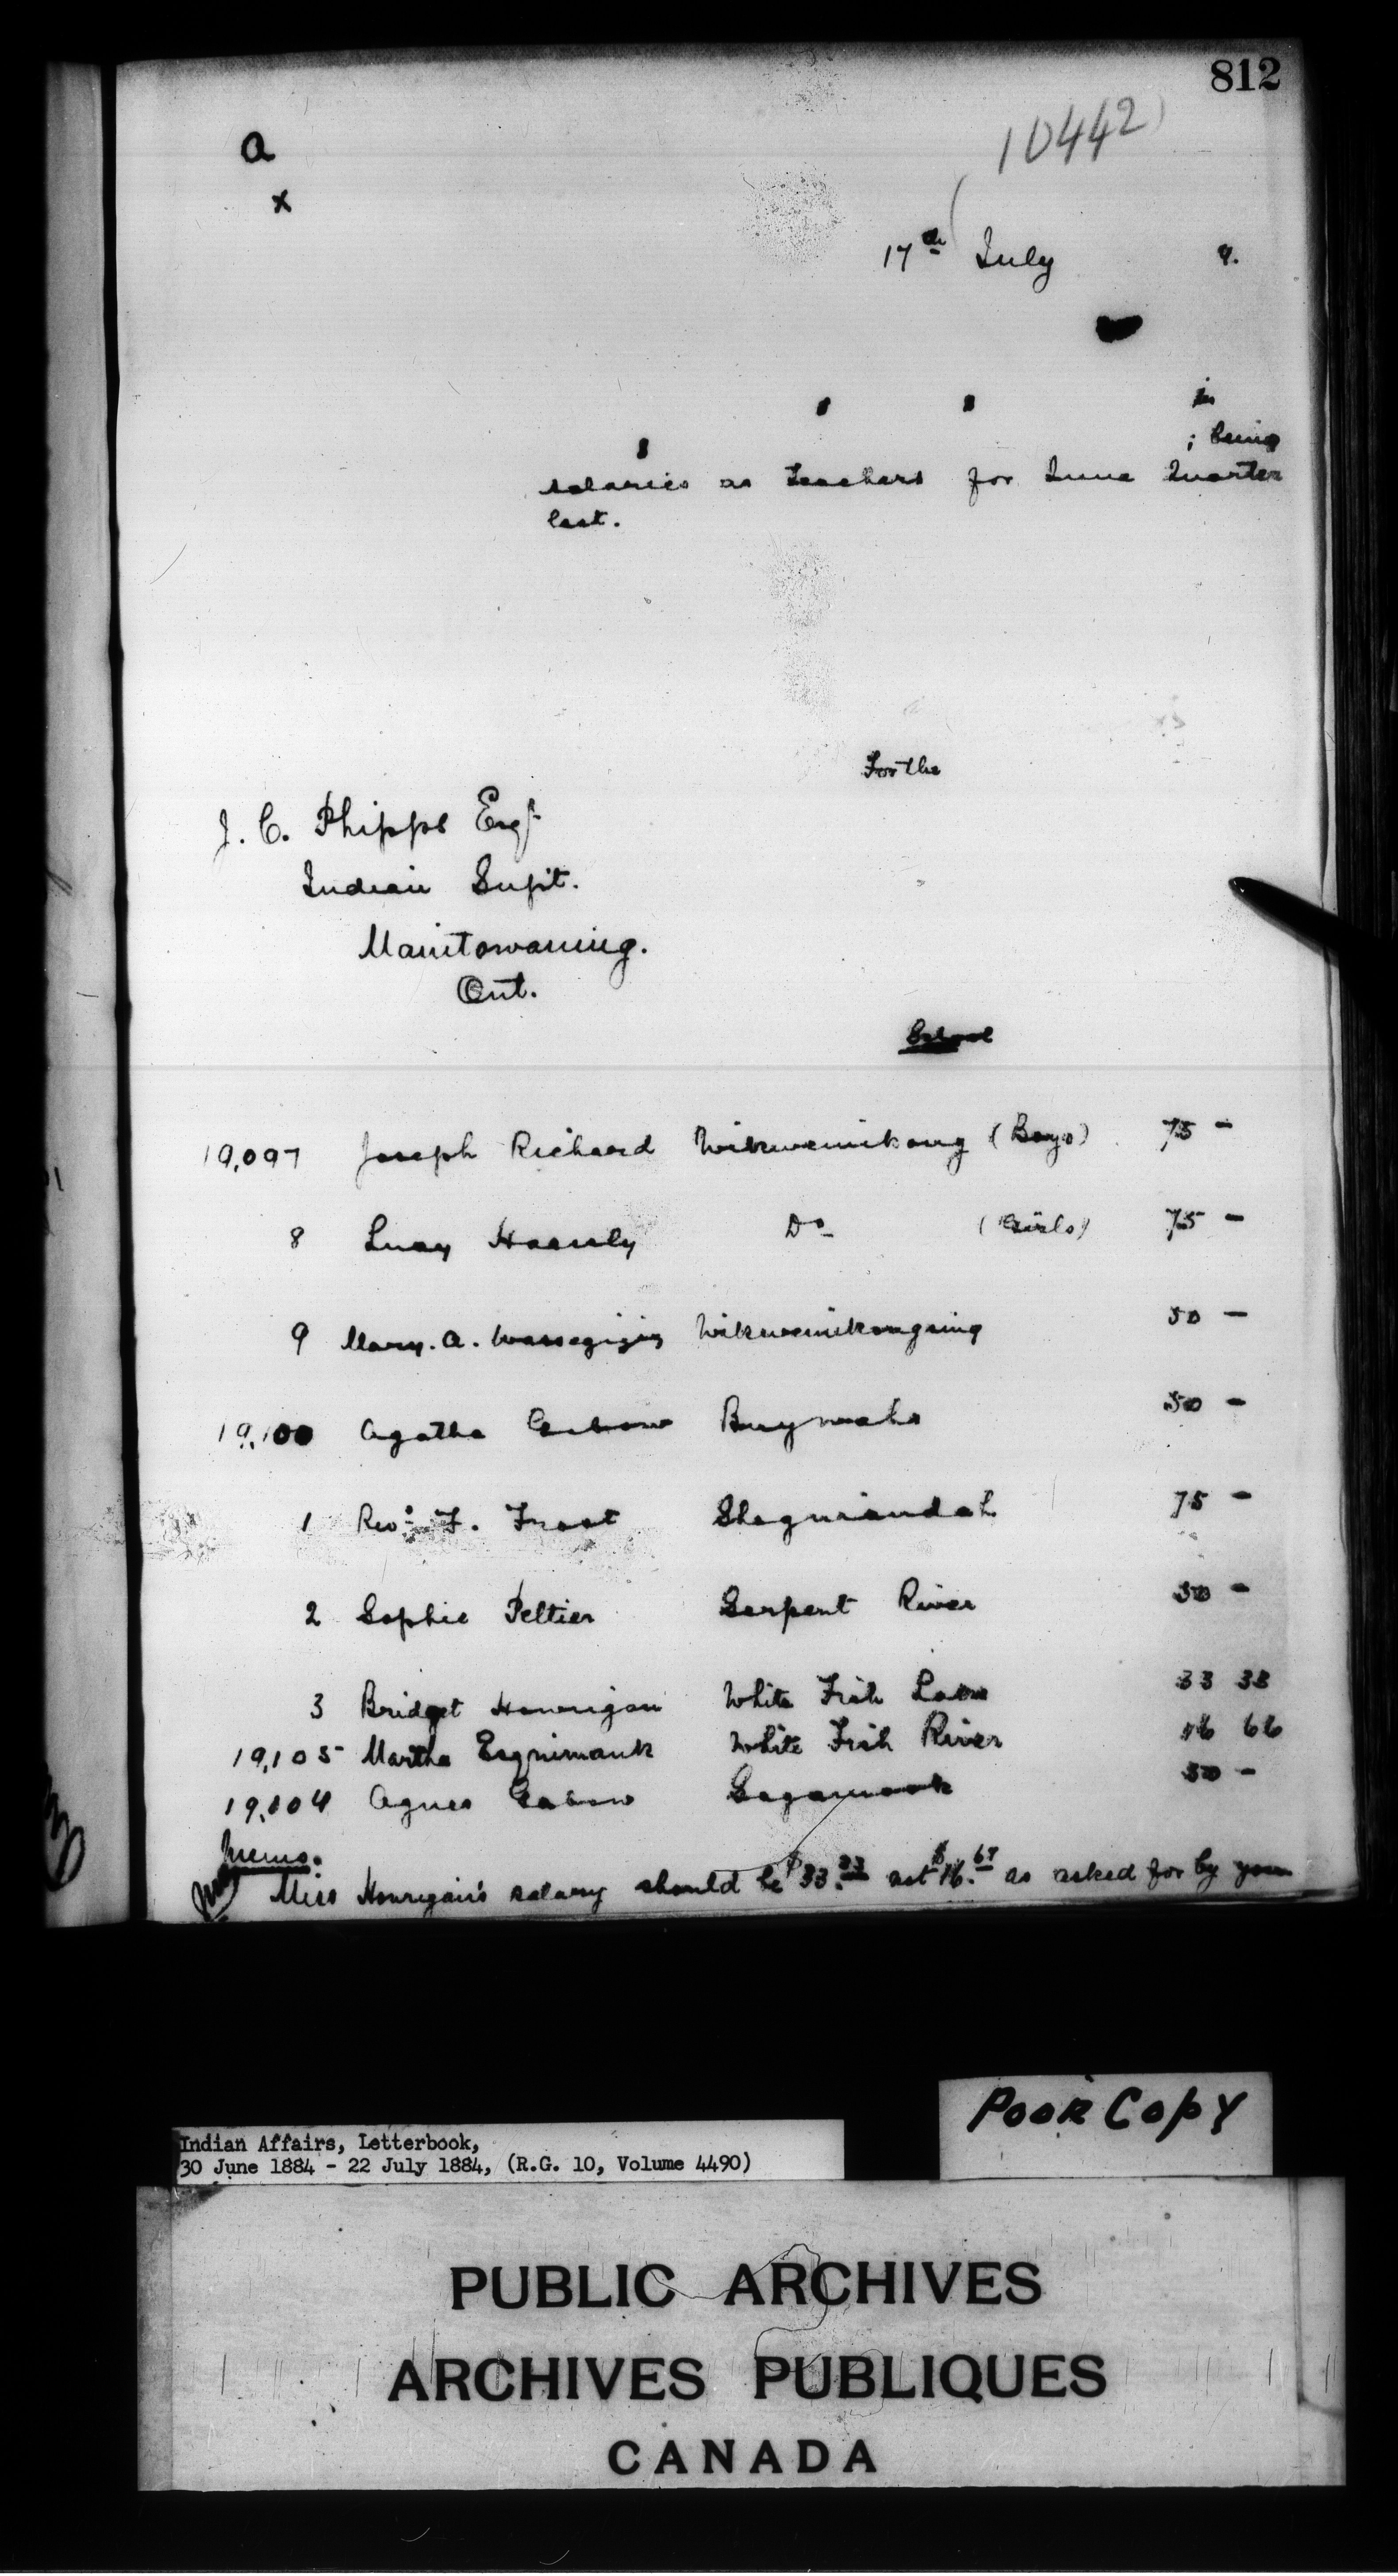 812
10442
a
x
17th July 4.
in
; being
salaries as Teachers for June Quarter
last.
For the
J. C. Phipps Esq.
Indian Supt.
Manitowaning.
Ont.
School
19,097 Joseph Richard Wikwemikong (Boys) 75 -
8 Lucy Haessly Do (Girls) 75 -
9 Mary. A. Wassegijig Wikwemikongsing 50 -
19,100 Agatha Gabow Buzwahs 50 -
1 Revd. F. Frost Sheguiandah 75 -
2 Sophie Peltier Serpent River 50 -
3 Bridget Honrigan White Fish Lake 33 33
19,105 Martha Esquimauk White Fish River 16 66
19,104 Agnes Gabow Sagamook 50 -
Memo.
Miss Honrigan's salary should be $33.33 not $16.67 as asked for by you
Poor Copy
Indian Affairs, Letterbook,
30 June 1884 - 22 July 1884, (R.G. 10, Volume 4490)
PUBLIC ARCHIVES
ARCHIVES PUBLIQUES
CANADA